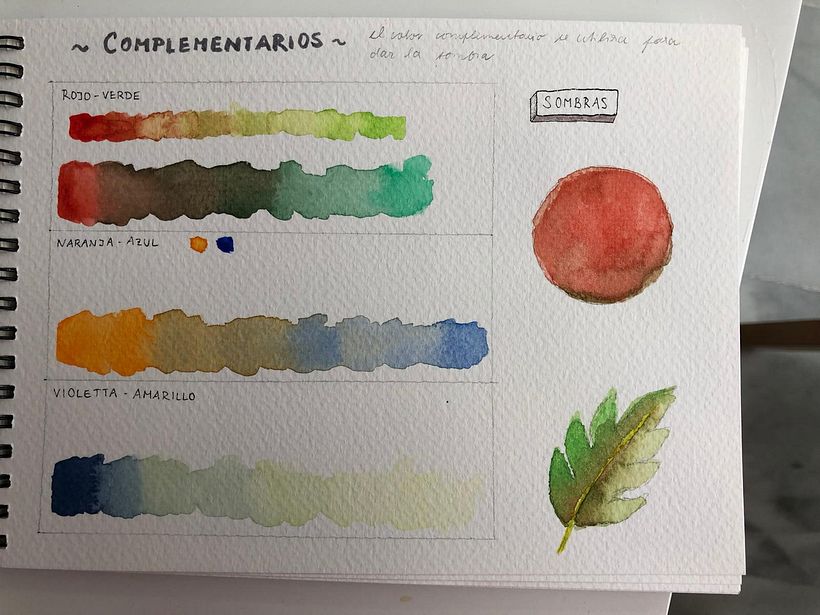 ~ COMPLEMENTARIOS ~
el color complementario se utiliza para
dar la sombra
ROJO - VERDE
SOMBRAS
NARANJA - AZUL
VIOLETTA - AMARILLO